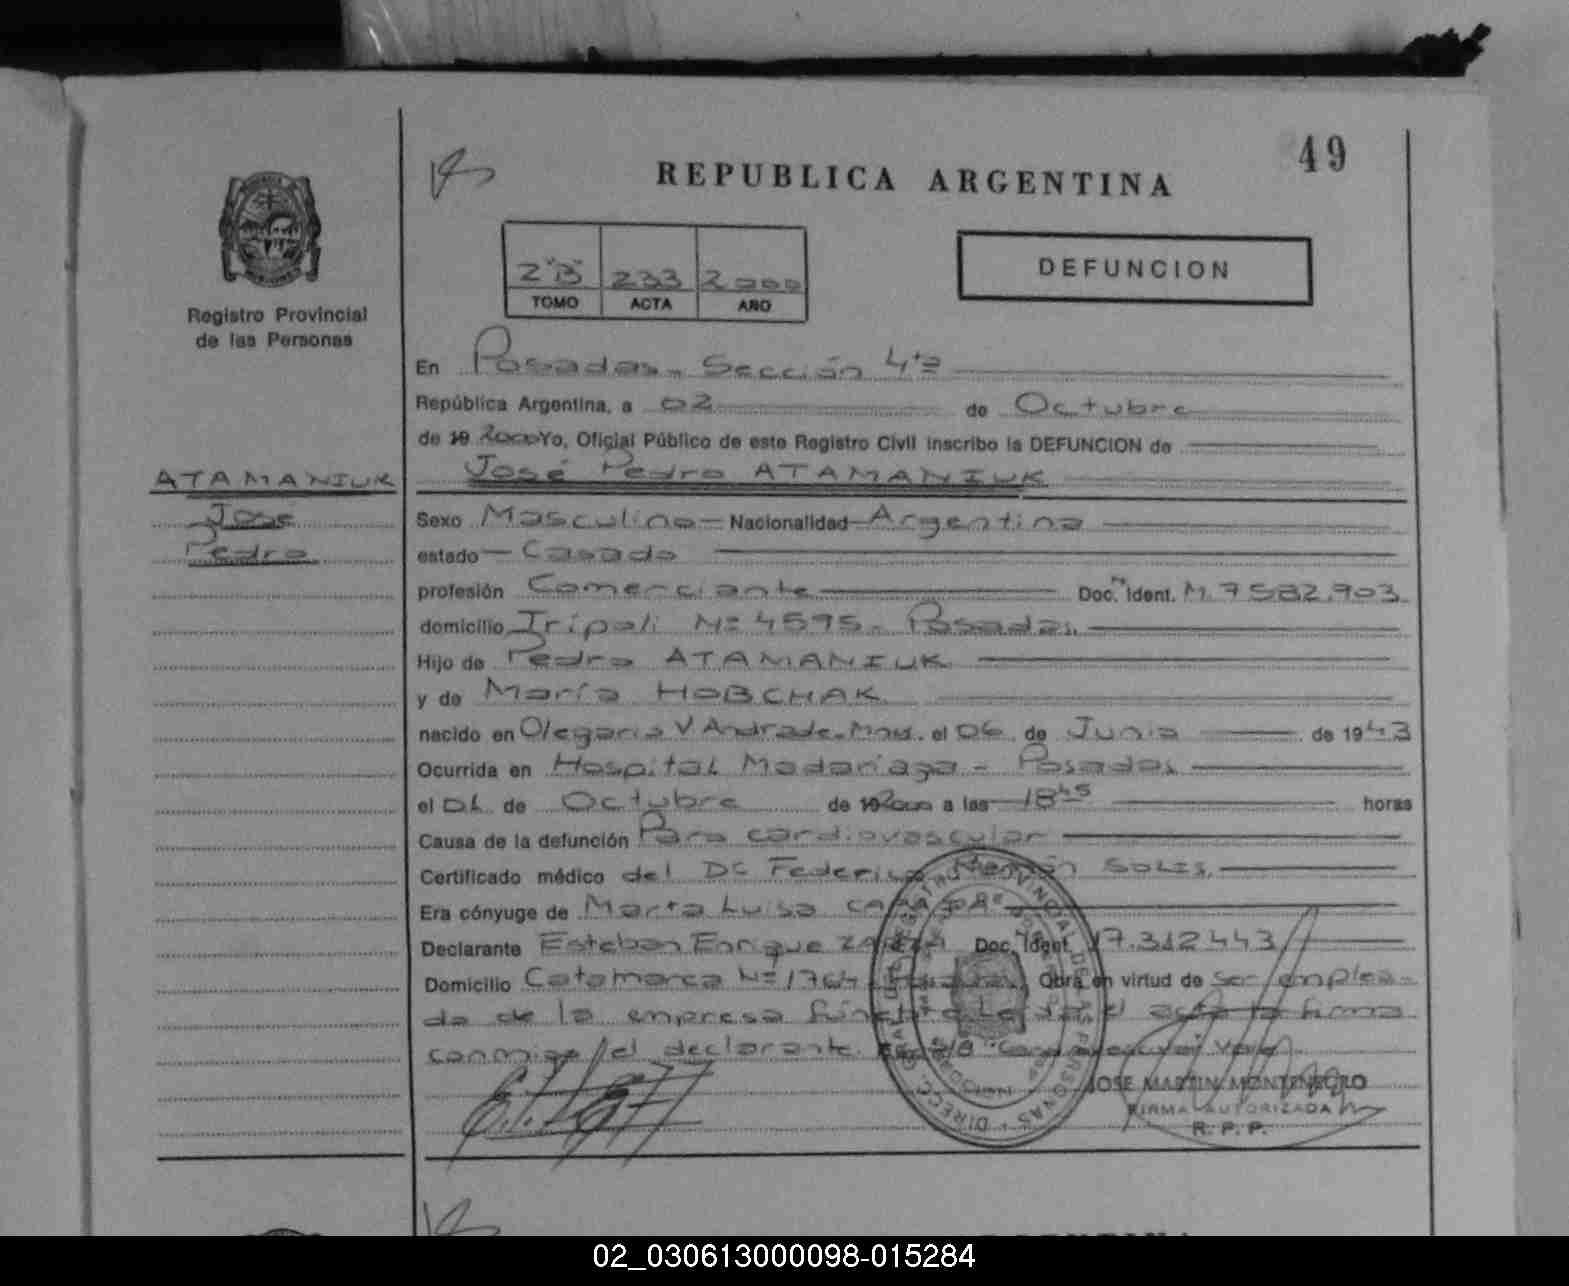 49
REPUBLICA ARGENTINA
2"B" 233 2000
TOMO ACTA AÑO
DEFUNCION
Registro Provincial
de las Personas
En Posadas - Sección 4ta
República Argentina, a 02 de Octubre
de 19 2000 Yo, Oficial Público de este Registro Civil inscribo la DEFUNCION de
ATAMANIUK
José
Pedro
José Pedro ATAMANIUK
Sexo Masculino Nacionalidad Argentina
estado Casado
profesión Comerciante Doc. Ident. M. 7582.903
domicilio Trípoli Nº 4595 - Posadas.
Hijo de Pedro ATAMANIUK
y de María HOBCHAK
nacido en Olegario V Andrade - Mnes. el 06 de Junio de 1943
Ocurrida en Hospital Madariaga - Posadas
el 01 de Octubre de 19 2000 a las 18 45 horas
Causa de la defunción Paro cardiovascular
Certificado médico del Dr Federico Hernán SOLIS.
Era cónyuge de Marta Luisa
Declarante Esteban Enrique Doc. Ident. 17.312443
Domicilio Catamarca Nº 1764 Posadas Obra en virtud de ser emplea-
do de la empresa fúnebre Leída el acta la firma
conmigo el declarante.
JOSE MARTIN MONTENEGRO
FIRMA AUTORIZADA
R. P. P.
02_030613000098-015284